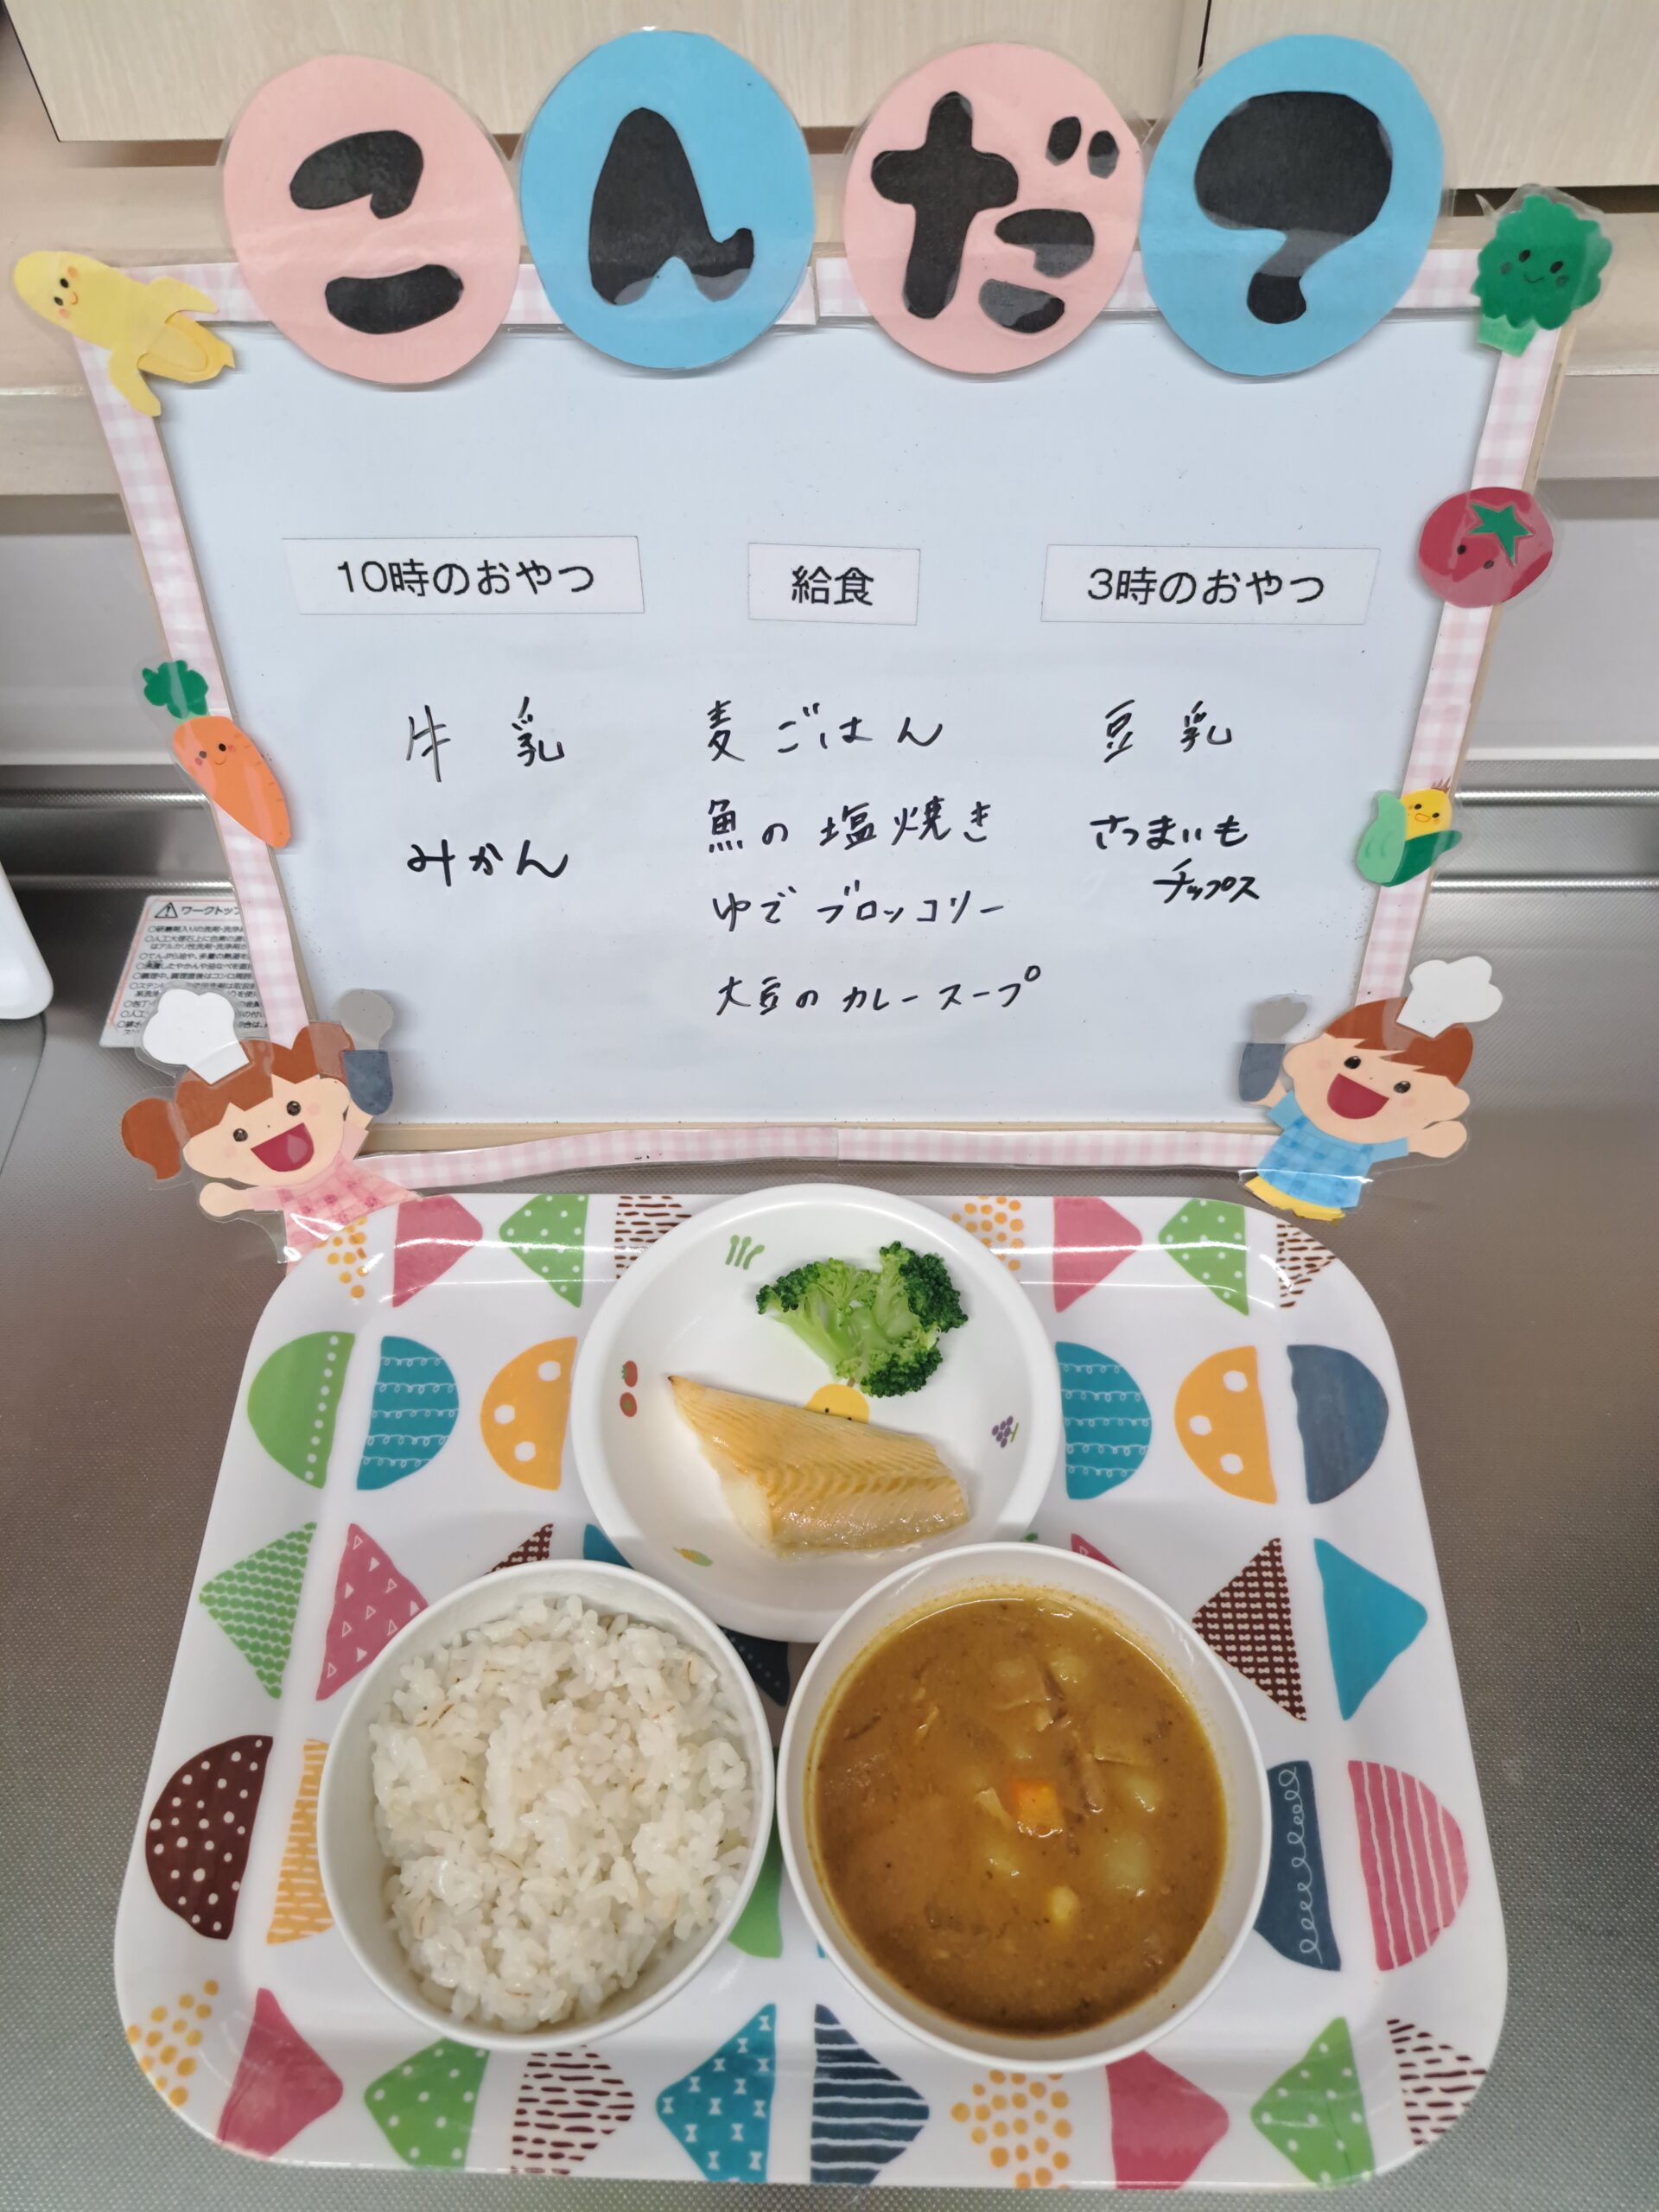 こんだ?
10時のおやつ
給食
3時のおやつ
牛乳
麦ごはん
豆乳
みかん
魚の塩焼き
さつまいも
チップス
ゆでブロッコリー
大豆のカレースープ
ワークトップ